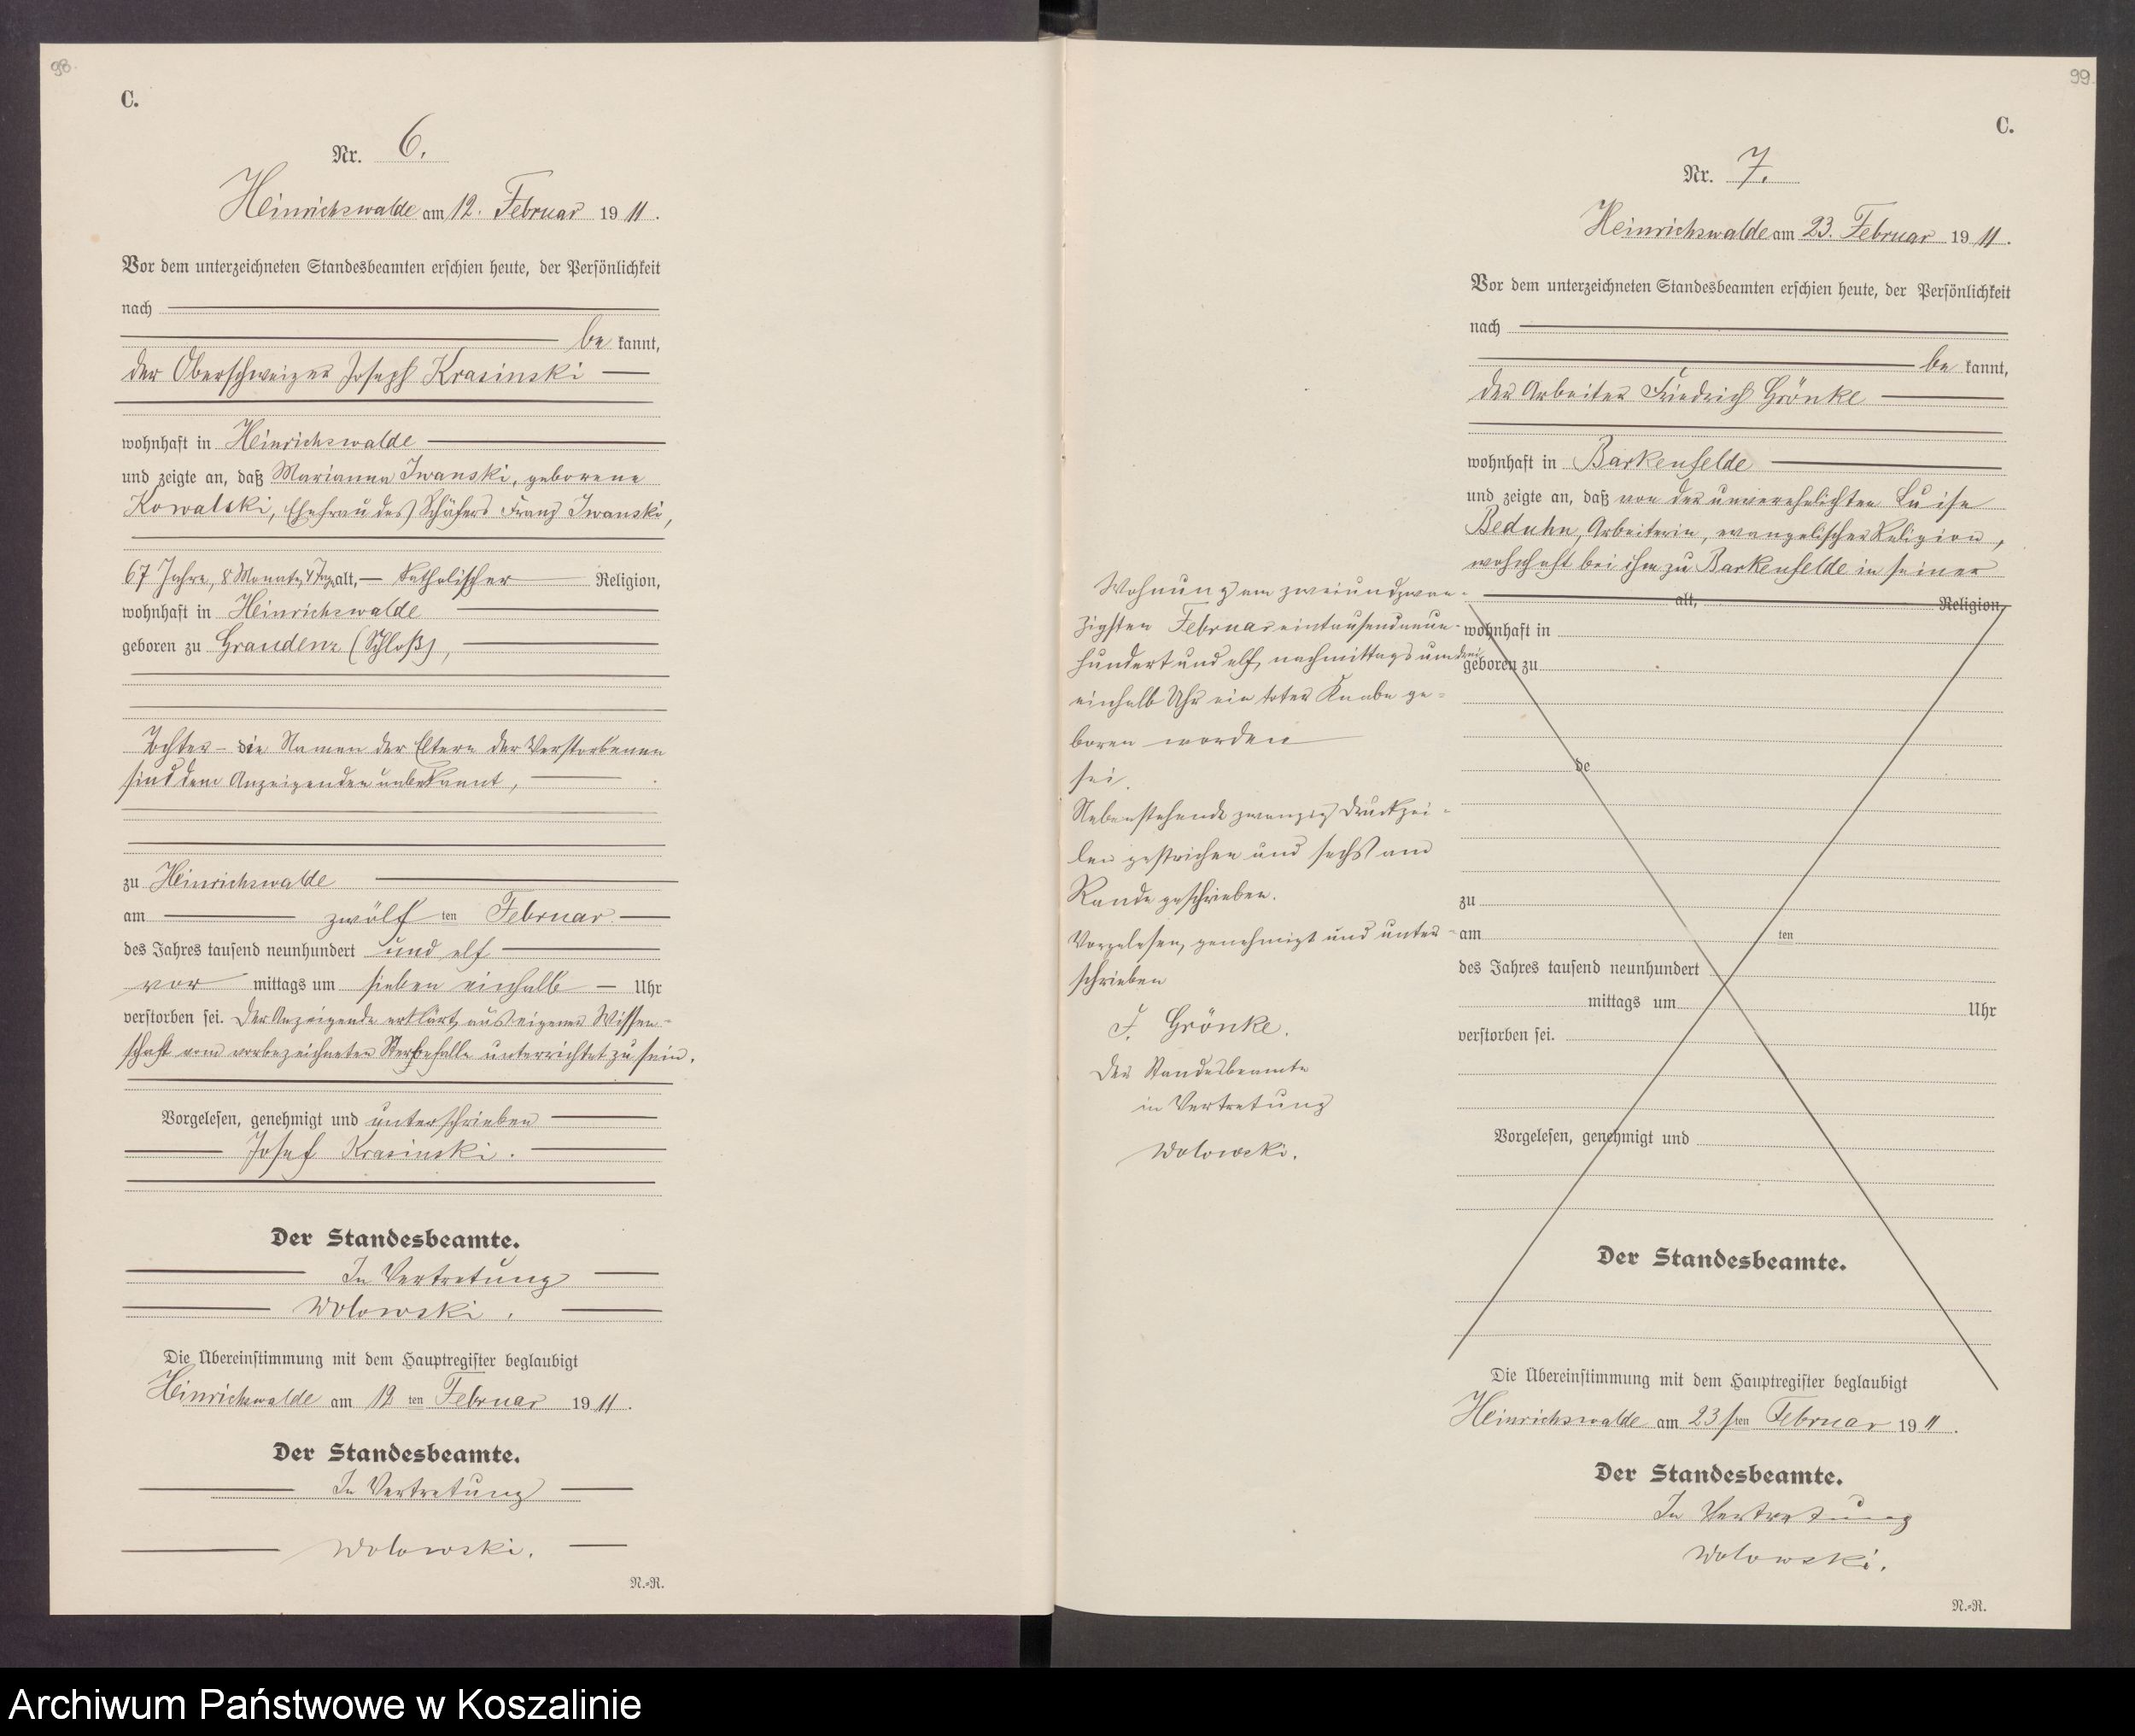 98.
C.
Nr. 6.
Heinrichswalde am 12. Februar 1911.
Vor dem unterzeichneten Standesbeamten erschien heute, der Persönlichkeit
nach
be kannt,
der Oberschweizer Joseph Krasinski
wohnhaft in Heinrichswalde
und zeigte an, daß Marianna Iwanski, geborene
Kowalski, Ehefrau des Schäfers Franz Iwanski,
67 Jahre, 8 Monate, 4 Tage alt, katholischer Religion,
wohnhaft in Heinrichswalde
geboren zu Graudenz (Schloß),
Tochter – die Namen der Eltern der Verstorbenen
sind dem Anzeigenden unbekannt,
zu Heinrichswalde
am zwölf ten Februar
des Jahres tausend neunhundert und elf
vor mittags um sieben einhalb Uhr
verstorben sei. Der Anzeigende erklärt, aus eigener Wissen-
schaft vom vorbezeichneten Sterbefalle unterrichtet zu sein.
Vorgelesen, genehmigt und unterschrieben
Josef Krasinski.
Der Standesbeamte.
In Vertretung
Wolowski.
Die Übereinstimmung mit dem Hauptregister beglaubigt
Heinrichswalde am 12 ten Februar 1911.
Der Standesbeamte.
In Vertretung
Wolowski.
N.-R.
99.
C.
Nr. 7.
Heinrichswalde am 23. Februar 1911.
Vor dem unterzeichneten Standesbeamten erschien heute, der Persönlichkeit
nach
be kannt,
der Arbeiter Friedrich Grönke
wohnhaft in Barkenfelde
und zeigte an, daß von der unverehelichten Luise
Beduhn, Arbeiterin, evangelischer Religion,
wohnhaft bei ihm zu Barkenfelde in seiner
Wohnung am zweiundzwan-
zigsten Februar eintausendneun-
hundert und elf, nachmittags um drei
einhalb Uhr ein toter Knabe ge-
boren worden
sei.
Nebenstehende zwanzig Druckzei-
len gestrichen und sechs am
Rande geschrieben.
Vorgelesen, genehmigt und unter-
schrieben
F. Grönke.
Der Standesbeamte
in Vertretung
Wolowski.
alt, Religion,
wohnhaft in
geboren zu
de
zu
am ten
des Jahres tausend neunhundert
mittags um Uhr
verstorben sei.
Vorgelesen, genehmigt und
Der Standesbeamte.
Die Übereinstimmung mit dem Hauptregister beglaubigt
Heinrichswalde am 23 sten Februar 1911.
Der Standesbeamte.
In Vertretung
Wolowski.
N.-R.
Archiwum Państwowe w Koszalinie